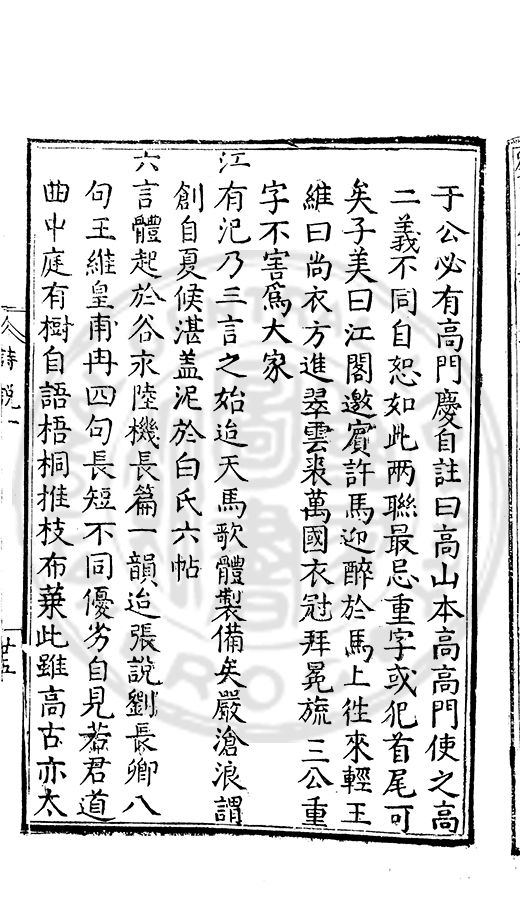 于公必有高門慶自註曰高山本高高門使之高
二義不同自恕如此两聯最忌重字或犯首尾可
矣子美曰江閣邀賓許馬迎醉於馬上徃來輕王
維曰尚衣方進翠雲裘萬國衣冠拜冕旒三公重
字不害爲大家
江有汜乃三言之始迨天馬歌體製備矣嚴滄浪謂
創自夏候湛盖泥於白氏六帖
六言體起於谷永陸機長篇一韻迨張說劉長卿八
句王維皇甫冉四句長短不同優劣自見若君道
曲中庭有樹自語梧桐推枝布葉此雖高古亦太
詩說一
廿五